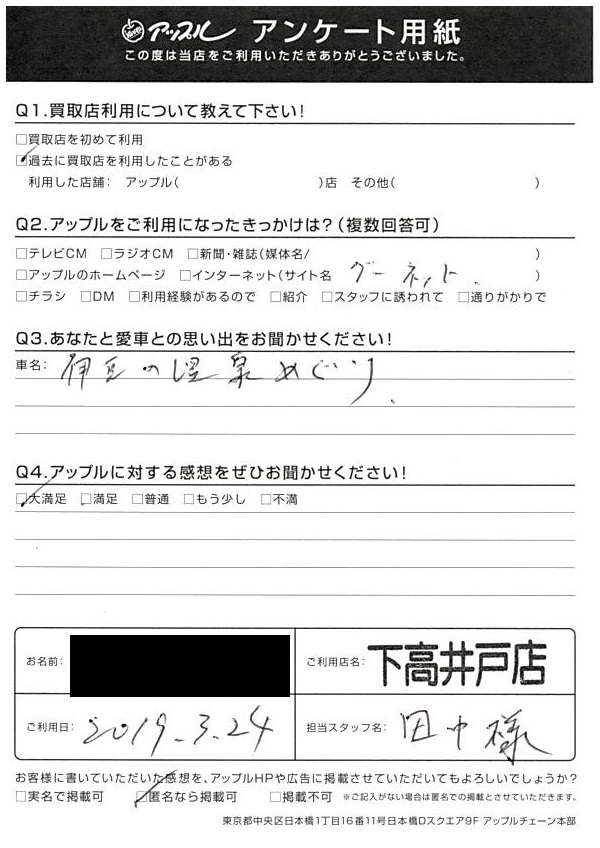 アップル アンケート用紙
この度は当店をご利用いただきありがとうございました。
Q1.買取店利用について教えて下さい！
□買取店を初めて利用
☑過去に買取店を利用したことがある
利用した店舗： アップル（ ）店 その他（ ）
Q2.アップルをご利用になったきっかけは？（複数回答可）
□テレビCM □ラジオCM □新聞・雑誌（媒体名/ ）
□アップルのホームページ □インターネット（サイト名 グーネット. ）
□チラシ □DM □利用経験があるので □紹介 □スタッフに誘われて □通りがかりで
Q3.あなたと愛車との思い出をお聞かせください！
車名： 伊豆の温泉めぐり.
Q4.アップルに対する感想をぜひお聞かせください！
☑大満足 □満足 □普通 □もう少し □不満
お名前： ご利用店名： 下高井戸店
ご利用日： 2019.3.24 担当スタッフ名： 田中様
お客様に書いていただいた感想を、アップルHPや広告に掲載させていただいてもよろしいでしょうか？
□実名で掲載可 ☑匿名なら掲載可 □掲載不可 ※ご記入がない場合は匿名での掲載とさせていただきます。
東京都中央区日本橋1丁目16番11号日本橋Dスクエア9F アップルチェーン本部